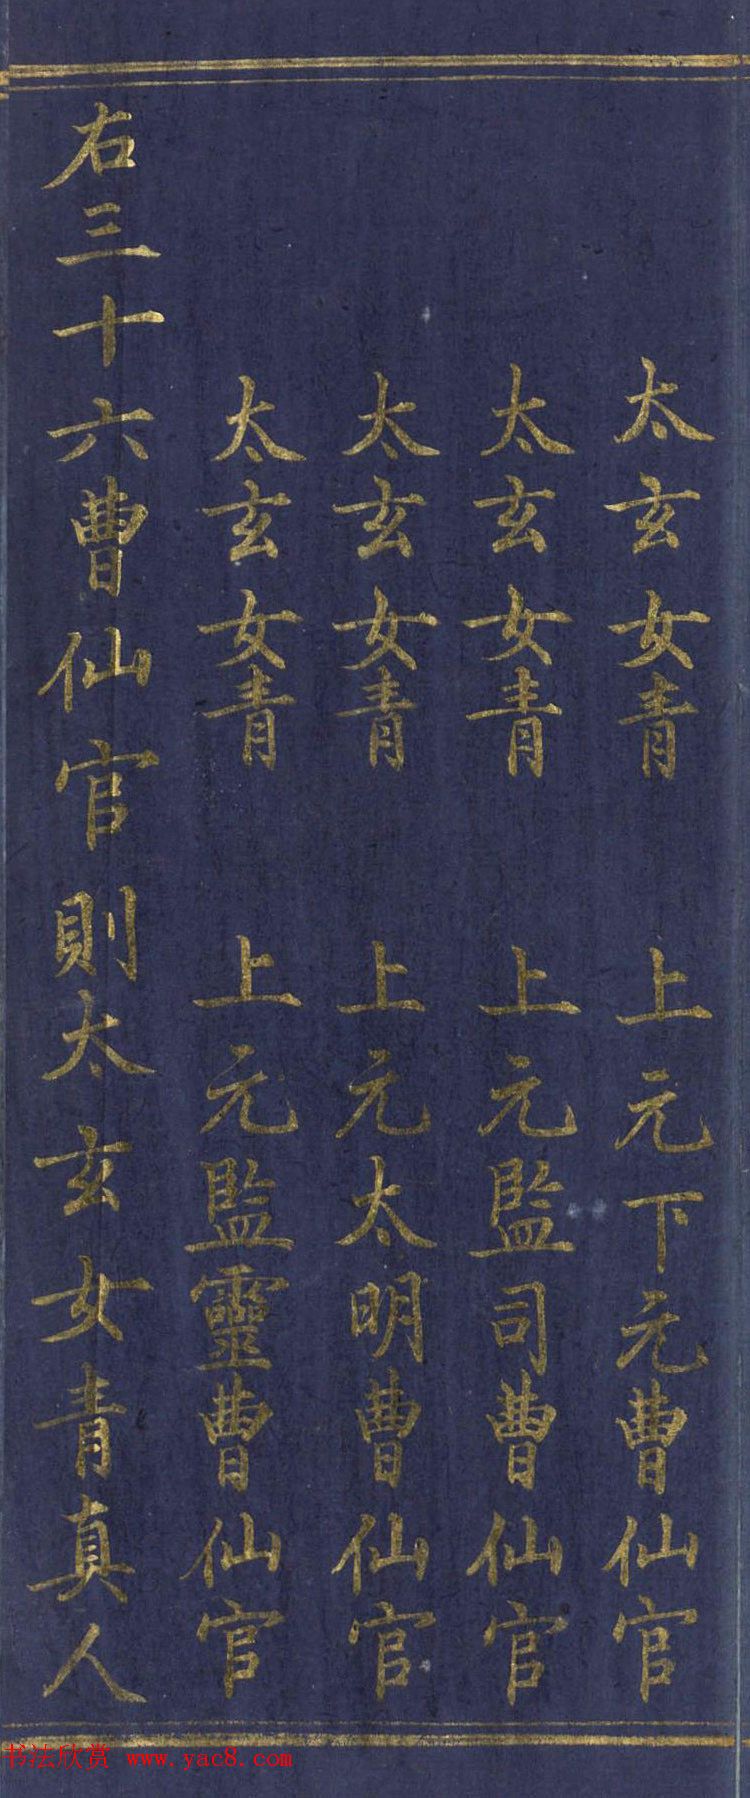 太玄女青 上元下元曹仙官
太玄女青 上元監司曹仙官
太玄女青 上元太明曹仙官
太玄女青 上元監靈曹仙官
右三十六曹仙官則太玄女青真人
书法欣赏 www.yac8.com